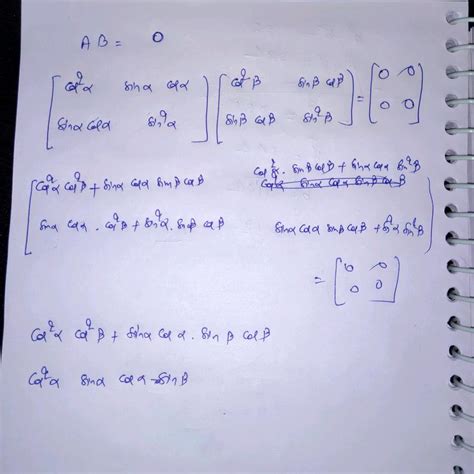 AB = 0
[cos²α sinα cosα] [cos²β sinβ cosβ] = [0 0]
[sinα cosα sin²α] [sinβ cosβ sin²β] [0 0]
[cos²α cos²β + sinα cosα sinβ cosβ cos²α · sinβ cosβ + sinα cosα sin²β]
[sinα cosα · cos²β + sin²α · sinβ cosβ sinα cosα sinβ cosβ + sin²α sin²β]
= [0 0]
[0 0]
cos²α cos²β + sinα cosα · sinβ cosβ
cos²α sinα cosα sinβ